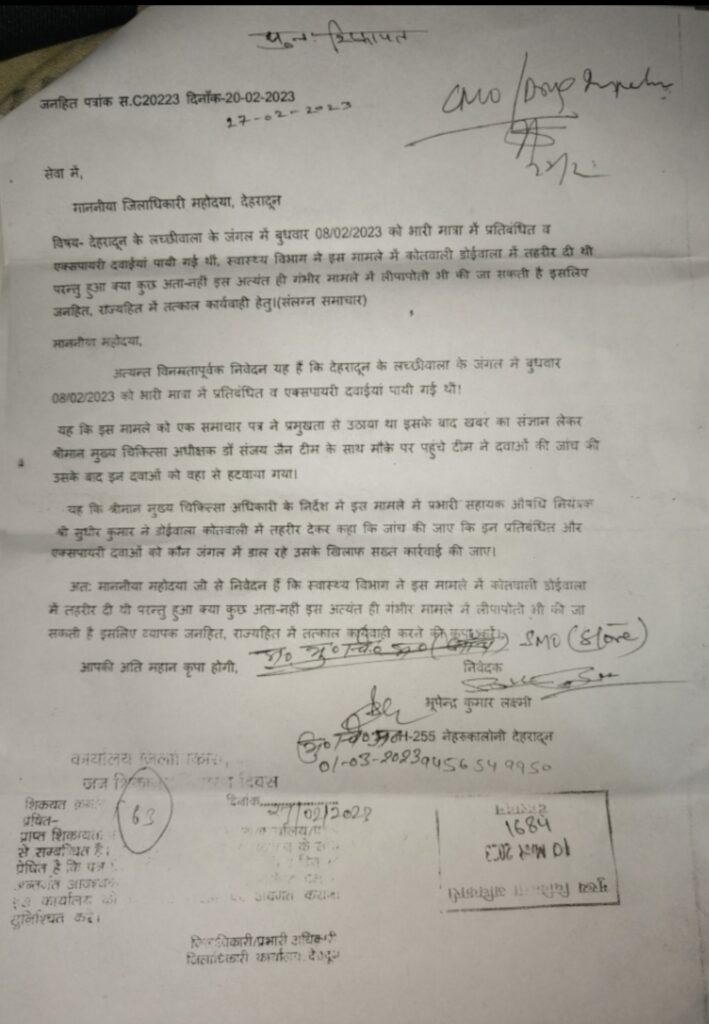 पुनः शिकायत
जनहित पत्रांक स.C20223 दिनाँक-20-02-2023
27-02-2023
CMO / Drug
सेवा में,
माननीया जिलाधिकारी महोदया, देहरादून
विषय- देहरादून के लच्छीवाला के जंगल में बुधवार 08/02/2023 को भारी मात्रा में प्रतिबंधित व
एक्सपायरी दवाईयां पायी गई थी, स्वास्थ्य विभाग ने इस मामले में कोतवाली डोईवाला में तहरीर दी थी
परन्तु हुआ क्या कुछ अता-नहीं इस अत्यंत ही गंभीर मामले में लीपापोती भी की जा सकती है इसलिए
जनहित, राज्यहित में तत्काल कार्यवाही हेतु।(संलग्न समाचार)
माननीया महोदया,
अत्यन्त विनमतापूर्वक निवेदन यह हैं कि देहरादून के लच्छीवाला के जंगल में बुधवार
08/02/2023 को भारी मात्रा में प्रतिबंधित व एक्सपायरी दवाईयां पायी गई थी!
यह कि इस मामले को एक समाचार पत्र ने प्रमुखता से उठाया था इसके बाद खबर का संज्ञान लेकर
श्रीमान मुख्य चिकित्सा अधीक्षक डॉ संजय जैन टीम के साथ मौके पर पहुंचे टीम ने दवाओं की जांच की
उसके बाद इन दवाओं को वहा से हटवाया गया।
यह कि श्रीमान मुख्य चिकित्सा अधिकारी के निर्देश में इस मामले में प्रभारी सहायक औषधि नियंत्रक
श्री सुधीर कुमार ने डोईवाला कोतवाली में तहरीर देकर कहा कि जांच की जाए कि इन प्रतिबंधित और
एक्सपायरी दवाओं को कौन जंगल में डाल रहे उसके खिलाफ सख्त कार्रवाई की जाए।
अत: माननीया महोदया जी से निवेदन हैं कि स्वास्थ्य विभाग ने इस मामले में कोतवाली डोईवाला
में तहरीर दी थी परन्तु हुआ क्या कुछ अता-नहीं इस अत्यंत ही गंभीर मामले में लीपापोती भी की जा
सकती है इसलिए व्यापक जनहित, राज्यहित में तत्काल कार्यवाही करने की कृपा करें।
SMO (Store)
आपकी अति महान कृपा होगी,
निवेदक
भूपेन्द्र कुमार लक्ष्मी
H-255 नेहरूकालोनी देहरादून
01-03-2023 9456549950
कार्यालय जिला
जन दिवस
63
दिनांक 27/02/2023
प्रेषित-
प्राप्त शिकायत
से सम्बन्धित है।
प्रेषित है कि पत्र
कार्यालय को अवगत कराना
सुनिश्चित करें।
जिलाधिकारी/प्रभारी अधिकारी
जिलाधिकारी कार्यालय, देहरादून
मुख्य चिकित्सा अधिकारी
10 MAR 2023
1684
देहरादून